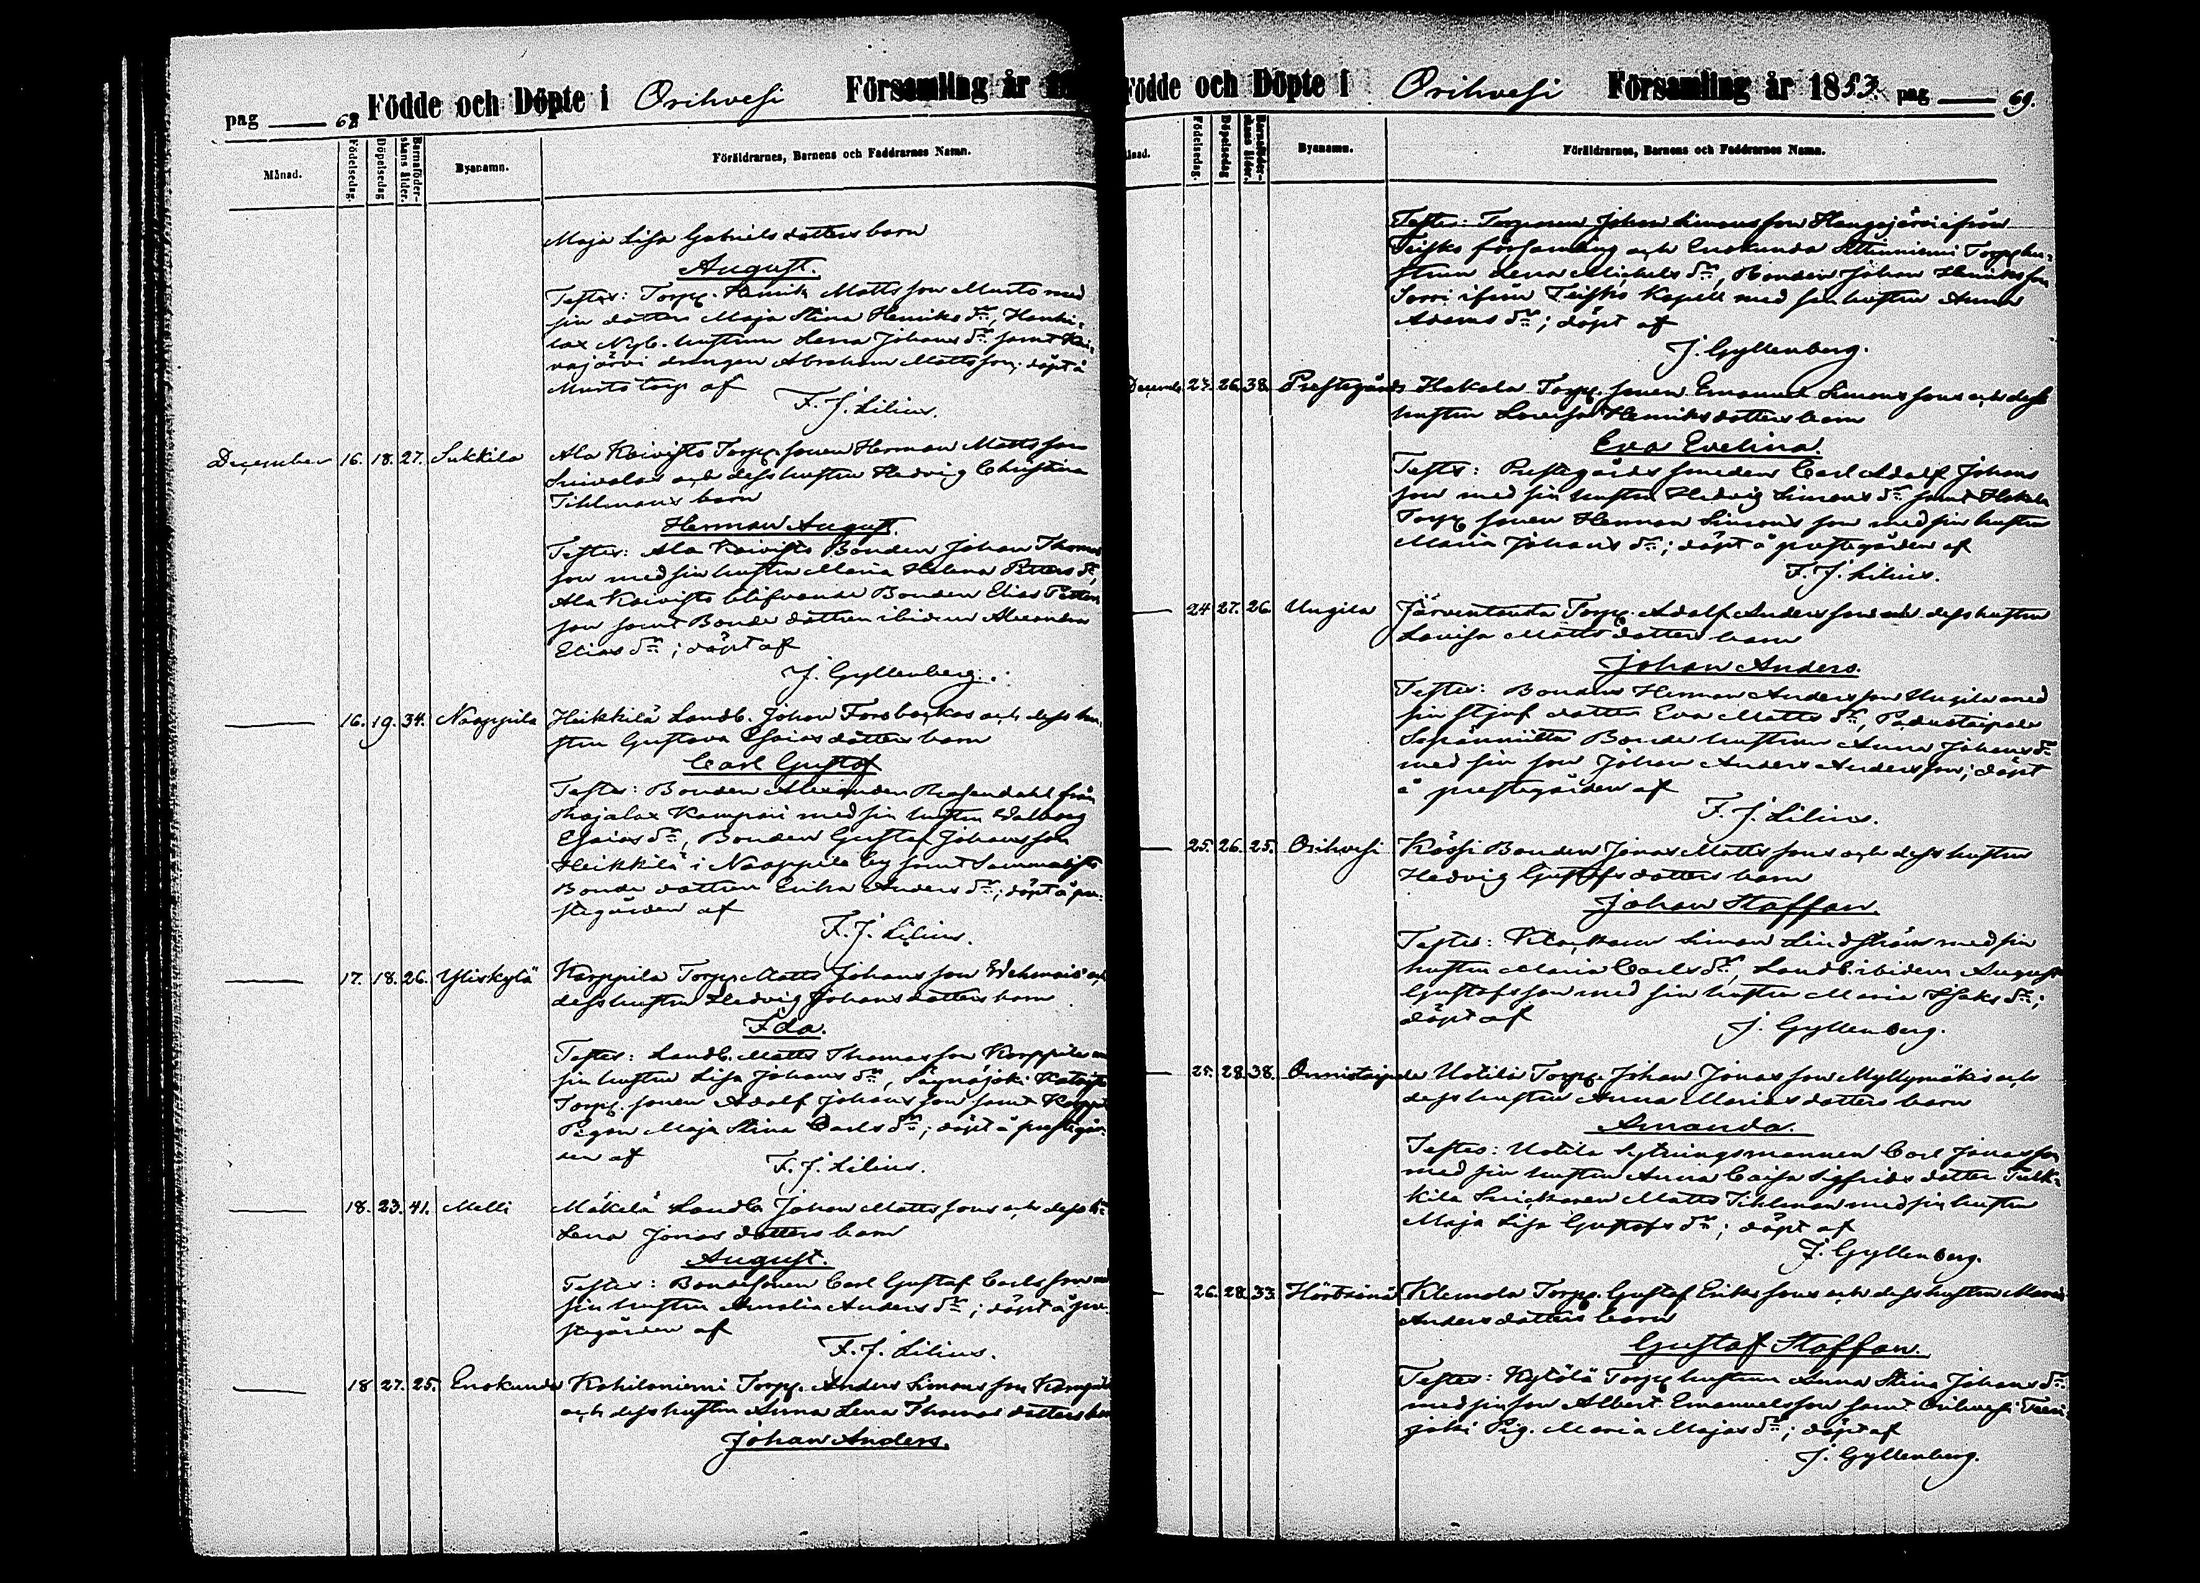 pag 68 Födde och Döpte i Orihvesi Församling år
Månad. Födelsedag. Döpelsedag Barnaföderskans ålder. Bysnamn. Föräldrarnes, Barnens och Faddrarnes Namn.
Maja Lisa Gabrielsdotters barn
August.
Testes: Torp. Henrik Mattsson Musto med
sin dotter Maja Stina Henriks dr,
Nyb. hustrun Lena Johans dr samt
drängen Abraham Mattsson; döpt å
Musto torp af
F. J. Lilius.
December 16. 18. 27. Sukkila Ala Koivisto Torp. sonen Herman Mattsson
och dess hustru Hedvig Christina
Tihlmans barn
Herman August.
Testes: Ala Koivisto Bonden Johan Thomas
son med sin hustru Maria Helena Petters dr,
Ala Koivisto blifvande Bonden Elias Petters
son samt Bonde dottren ibidem Alexandra
Elias dr; döpt af
J. Gyllenberg.
16. 19. 34. Naappila Heikkilä Landb. Johan Forsbackas och dess hu-
stru Gustava Esaias dotters barn
Carl Gustaf
Testes: Bonden Alexander Rosendahl från
med sin hustru Walborg
Esaias dr, Bonden Gustaf Johansson
Heikkilä i Naappila by samt
Bonde dottren Erika Anders dr; döpt å pre-
stegården af
F. J. Lilius.
17. 18. 26. Yliskylä Karppila Torp. Matts Johansson och
dess hustru Hedvig Johans dotters barn
Ida.
Testes: Landb. Matts Thomasson Karppila
sin hustru Lisa Johans dr,
Torp. sonen Adolf Johansson samt
Pigan Maja Stina Carls dr; döpt å prestegår-
den af
F. J. Lilius.
18. 23. 41. Melli Mäkelä Landb. Johan Mattssons och dess
Lena Jonas dotters barn
August.
Testes: Bondesonen Carl Gustaf Carlsson
sin hustru Amalia Anders dr; döpt å pre-
stegården af
F. J. Lilius.
18 27. 25. Enokunda Kohiloniemi Torp. Anders Simonsson
och dess hustru Anna Lena Thomas dotters
Johan Anders.
Födde och Döpte i Orihvesi Församling år 1853. pag 69.
Födelsedag. Döpelsedag Barnaföderskans ålder. Bysnamn. Föräldrarnes, Barnens och Faddrarnes Namn.
Testes: Torparen Johan Simonsson ifrån
Teisko församling och Enokunda Torp. hu-
strun Lena Michels dr, Bonden Johan Henriksson
Sorri ifrån Teisko Kapell med sin hustru Anna
Adams dr; döpt af
J. Gyllenberg.
23. 26. 38. Prestegårds Hakala Torp. sonen Emanuel Simonssons och dess
hustru Lovisa Henriksdotters barn
Eva Evelina.
Testes: Prestegårds smeden Carl Adolf Johans
son med sin hustru Hedvig Simons dr samt Hakala
Torp. sonen Herman Simons son med sin hustru
Maria Johans dr; döpt å prestegården af
F. J. Lilius.
24 27. 26. Ungila Järventausta Torp. Adolf Andersson och dess hustru
Lovisa Matts dotters barn
Johan Anders.
Testes: Bonden Herman Andersson Ungila med
sin stjuf dotter Eva Matts dr, Padustaipale
Bonde hustrun Anna Johans dr
med sin son Johan Anders Andersson; döpt
å prestegården af
F. J. Lilius.
25. 26. 25. Orihvesi Bonden Jonas Mattssons och dess hustru
Hedvig Gustafs dotters barn
Johan Staffan.
Testes: Klockaren Simon Lindström med sin
hustru Maria Carls dr, Landb. ibidem August
Gustafsson med sin hustru Maria Isaks dr;
döpt af
J. Gyllenberg.
25. 28. 38. Onnistaipale Uotila Torp. Johan Jonasson Myllymäkis och
dess hustru Anna Marias dotters barn
Amanda.
Testes: Uotila Sytningsmannen Carl Jonasson
med sin hustru Anna Caisa Sigfrids dotter
Snickaren Matts Tihlman med sin hustru
Maja Lisa Gustafs dr; döpt af
J. Gyllenberg.
26. 28. 33. Klemola Torp. Gustaf Erikssons och dess hustru Maria
Andersdotters barn
Gustaf Staffan.
Testes: Kytölä Torp. hustrun Anna Stina Johans dr
med sin son Albert Emanuelsson samt Orihvesi
Pig. Maria Majas dr; döpt af
J. Gyllenberg.